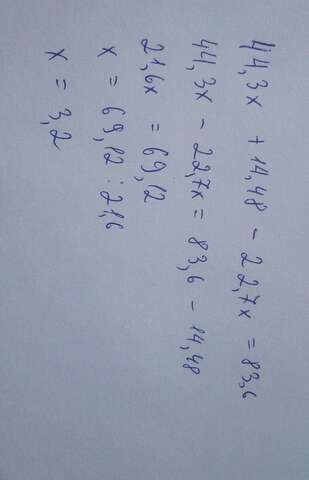 44,3x + 14,48 - 22,7x = 83,6
44,3x - 22,7x = 83,6 - 14,48
21,6x = 69,12
x = 69,12 : 21,6
x = 3,2